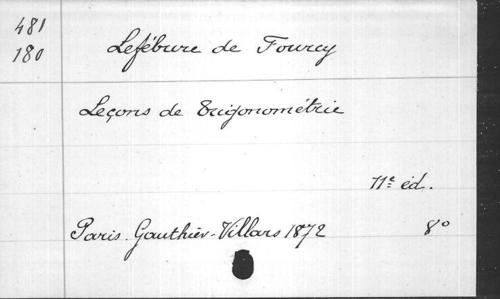 481
180
Lefébure de Fourcy
Leçons de Trigonométrie
11e éd.
Paris. Gauthier-Villars 1872 8o